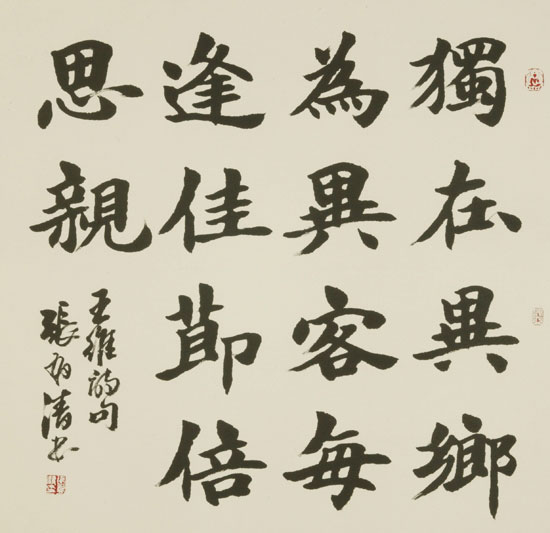 獨在異鄉
為異客每
逢佳節倍
思親
王維詩句
張清书